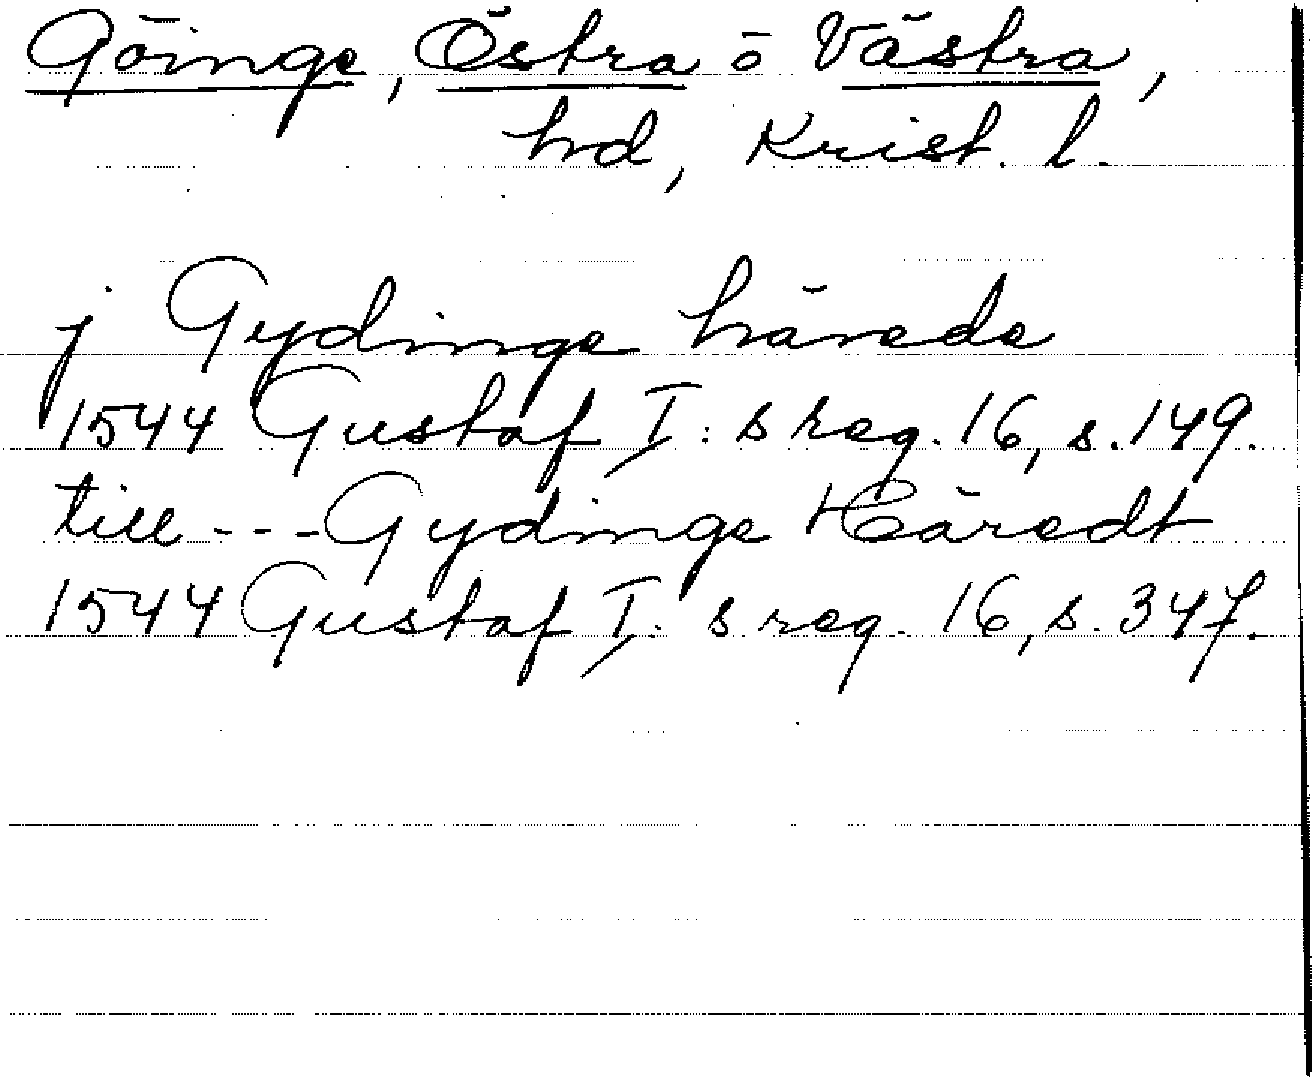 Göinge, Östra o Västra,
hd, Krist. l.
j Gydinge härede
1544 Gustaf I: s reg. 16, s. 149.
till --- Gydinge Häredt
1544 Gustaf I: s reg. 16, s. 347.